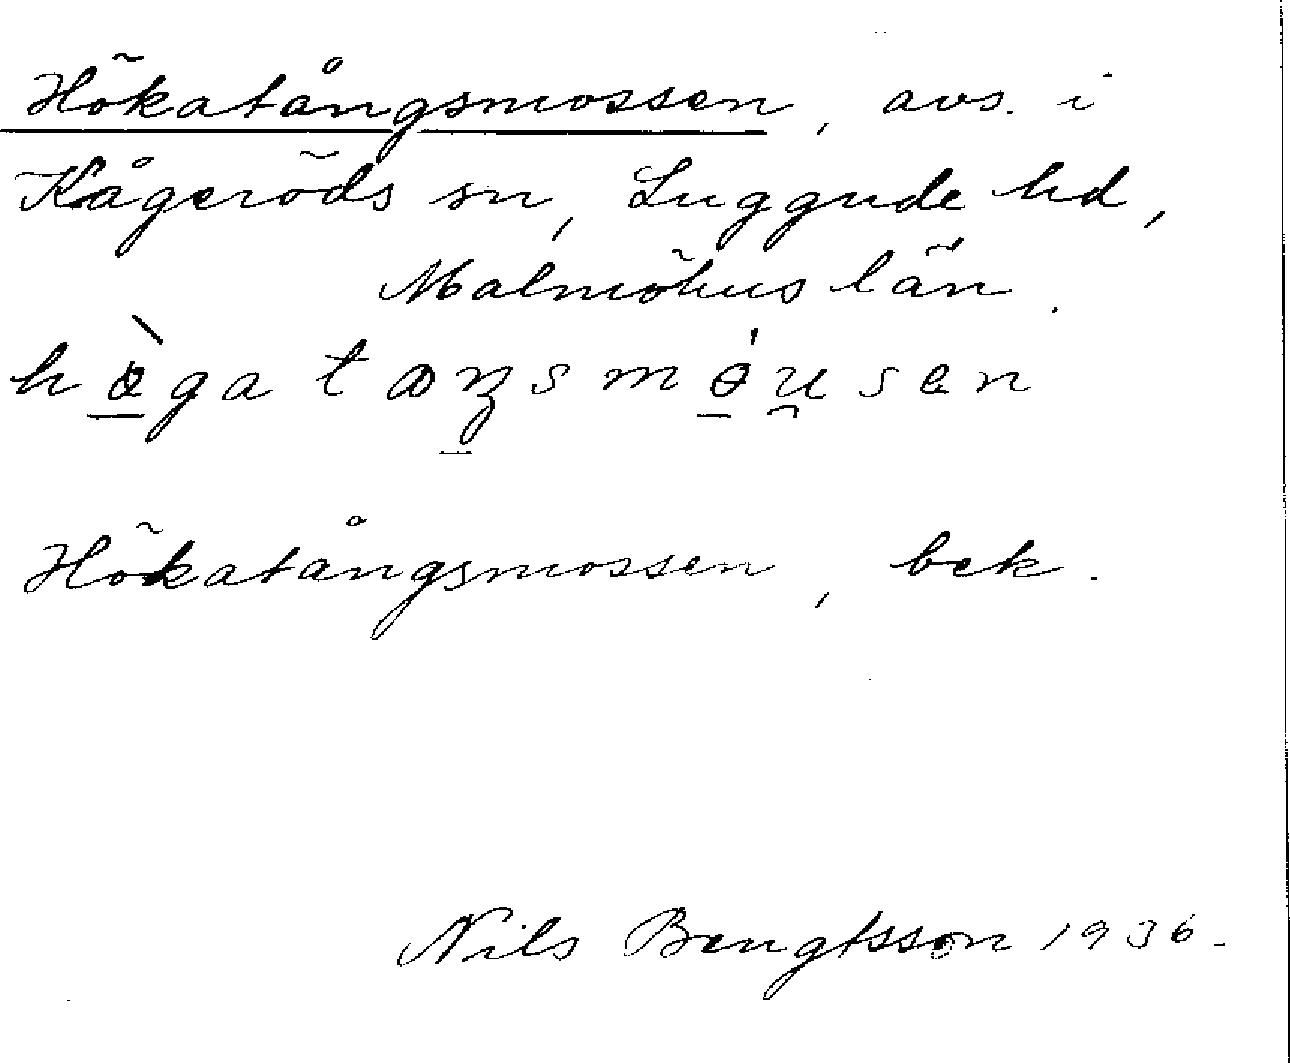 Hökatångsmossen, avs. i
Kågeröds sn, Luggude hd,
Malmöhus län.
hɵ̠̀ga taŋsmɵ̠́u̯sen
Hökatångsmossen, bek.
Nils Bengtsson 1936.